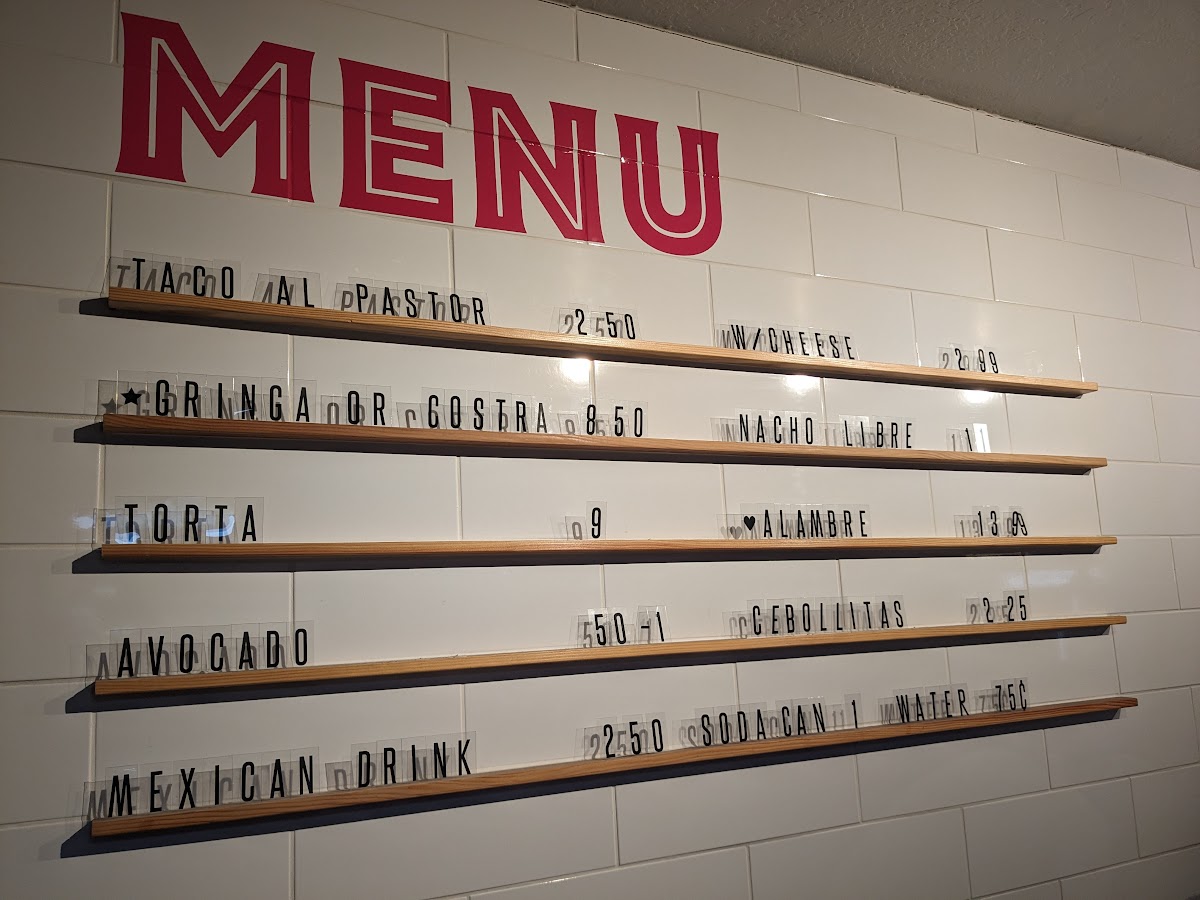 MENU
TACO AL PASTOR 2 50 W/CHEESE 2 99
★GRINGA OR COSTRA 8 50 NACHO LIBRE 11
TORTA 9 ♥ALAMBRE 13 99
AVOCADO 50-1 CEBOLLITAS 2 25
MEXICAN DRINK 2 50 SODA CAN 1 WATER 75¢